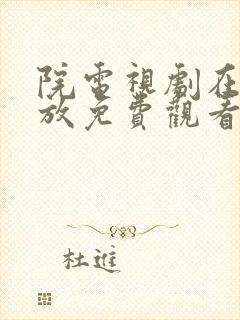 院電視劇在
放免費觀看
杜進